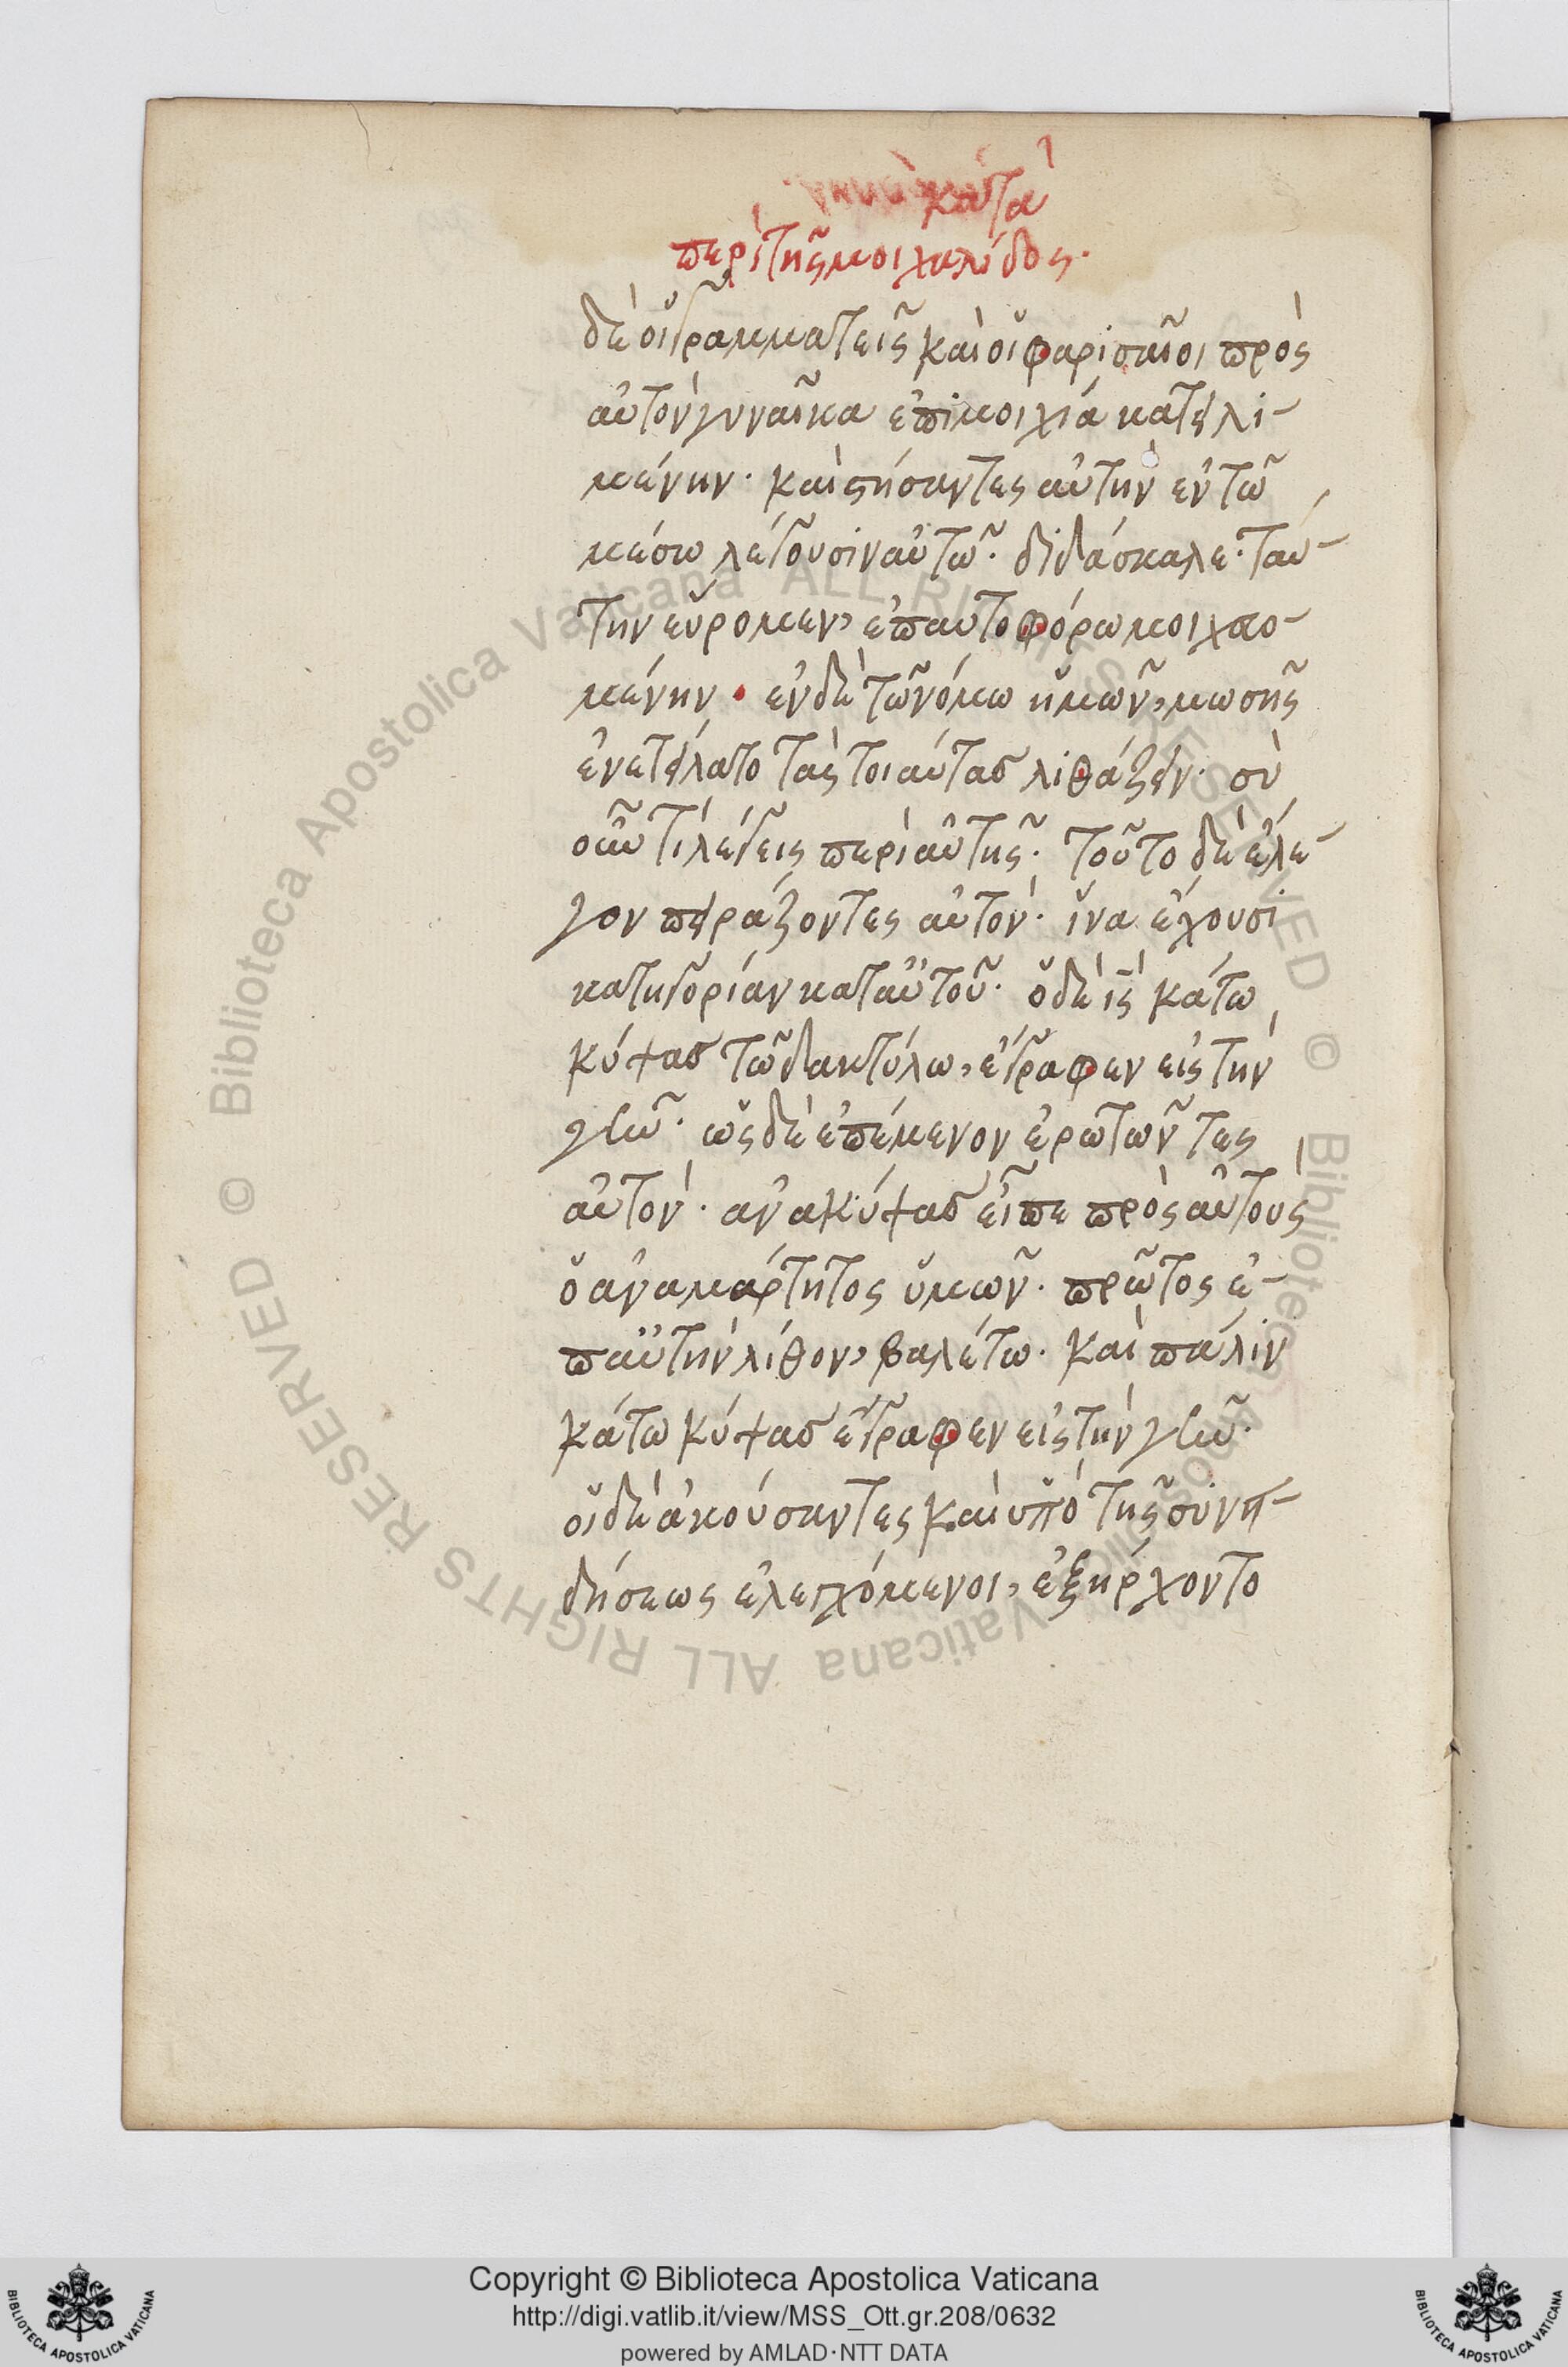 κατὰ
περὶ τῆς μοιχαλίδος.
δὲ οἱ γραμματεῖς καὶ οἱ φαρισαῖοι πρὸς
αὐτὸν γυναῖκα ἐπὶ μοιχιά κατειλι-
μένην. καὶ στήσαντες αὐτὴν ἐν τῶ
μέσω λέγουσιν αὐτῶ. διδάσκαλε. ταύ-
την εὕρομεν, ἐπαυτοφόρω μοιχαο-
μένην. ἐν δὲ τῶ νόμω ἡμῶν, μωσῆς
ἐνετείλατο τὰς τοιαύτας λιθάζειν. σὺ
οὖν τί λέγεις περὶ αὐτῆς. τοῦτο δὲ ἔλε-
γον πειράζοντες αὐτόν. ἵνα ἔχουσι
κατηγορίαν κατ αὐτοῦ. ὁ δὲ ις κάτω
κύψας τῶ δακτύλω, ἔγραφεν εἰς τὴν
γῆν. ὡς δὲ ἐπέμενον ἐρωτῶντες
αὐτόν. ἀνακύψας εἶπε πρὸς αὐτούς
ὁ ἀναμάρτητος ὑμῶν. πρῶτος ἐ-
π αὐτὴν λίθον, βαλέτω. καὶ πάλιν
κάτω κύψας ἔγραφεν εἰς τὴν γῆν.
οἱ δὲ ἀκούσαντες καὶ ὑπὸ τῆς συνει-
δήσεως ἐλεγχόμενοι, ἐξήρχοντο
Biblioteca Apostolica Vaticana ALL RIGHTS RESERVED ©
Biblioteca Apostolica Vaticana ALL RIGHTS RESERVED ©
Copyright © Biblioteca Apostolica Vaticana
http://digi.vatlib.it/view/MSS_Ott.gr.208/0632
powered by AMLAD·NTT DATA
BIBLIOTECA APOSTOLICA VATICANA
BIBLIOTECA APOSTOLICA VATICANA